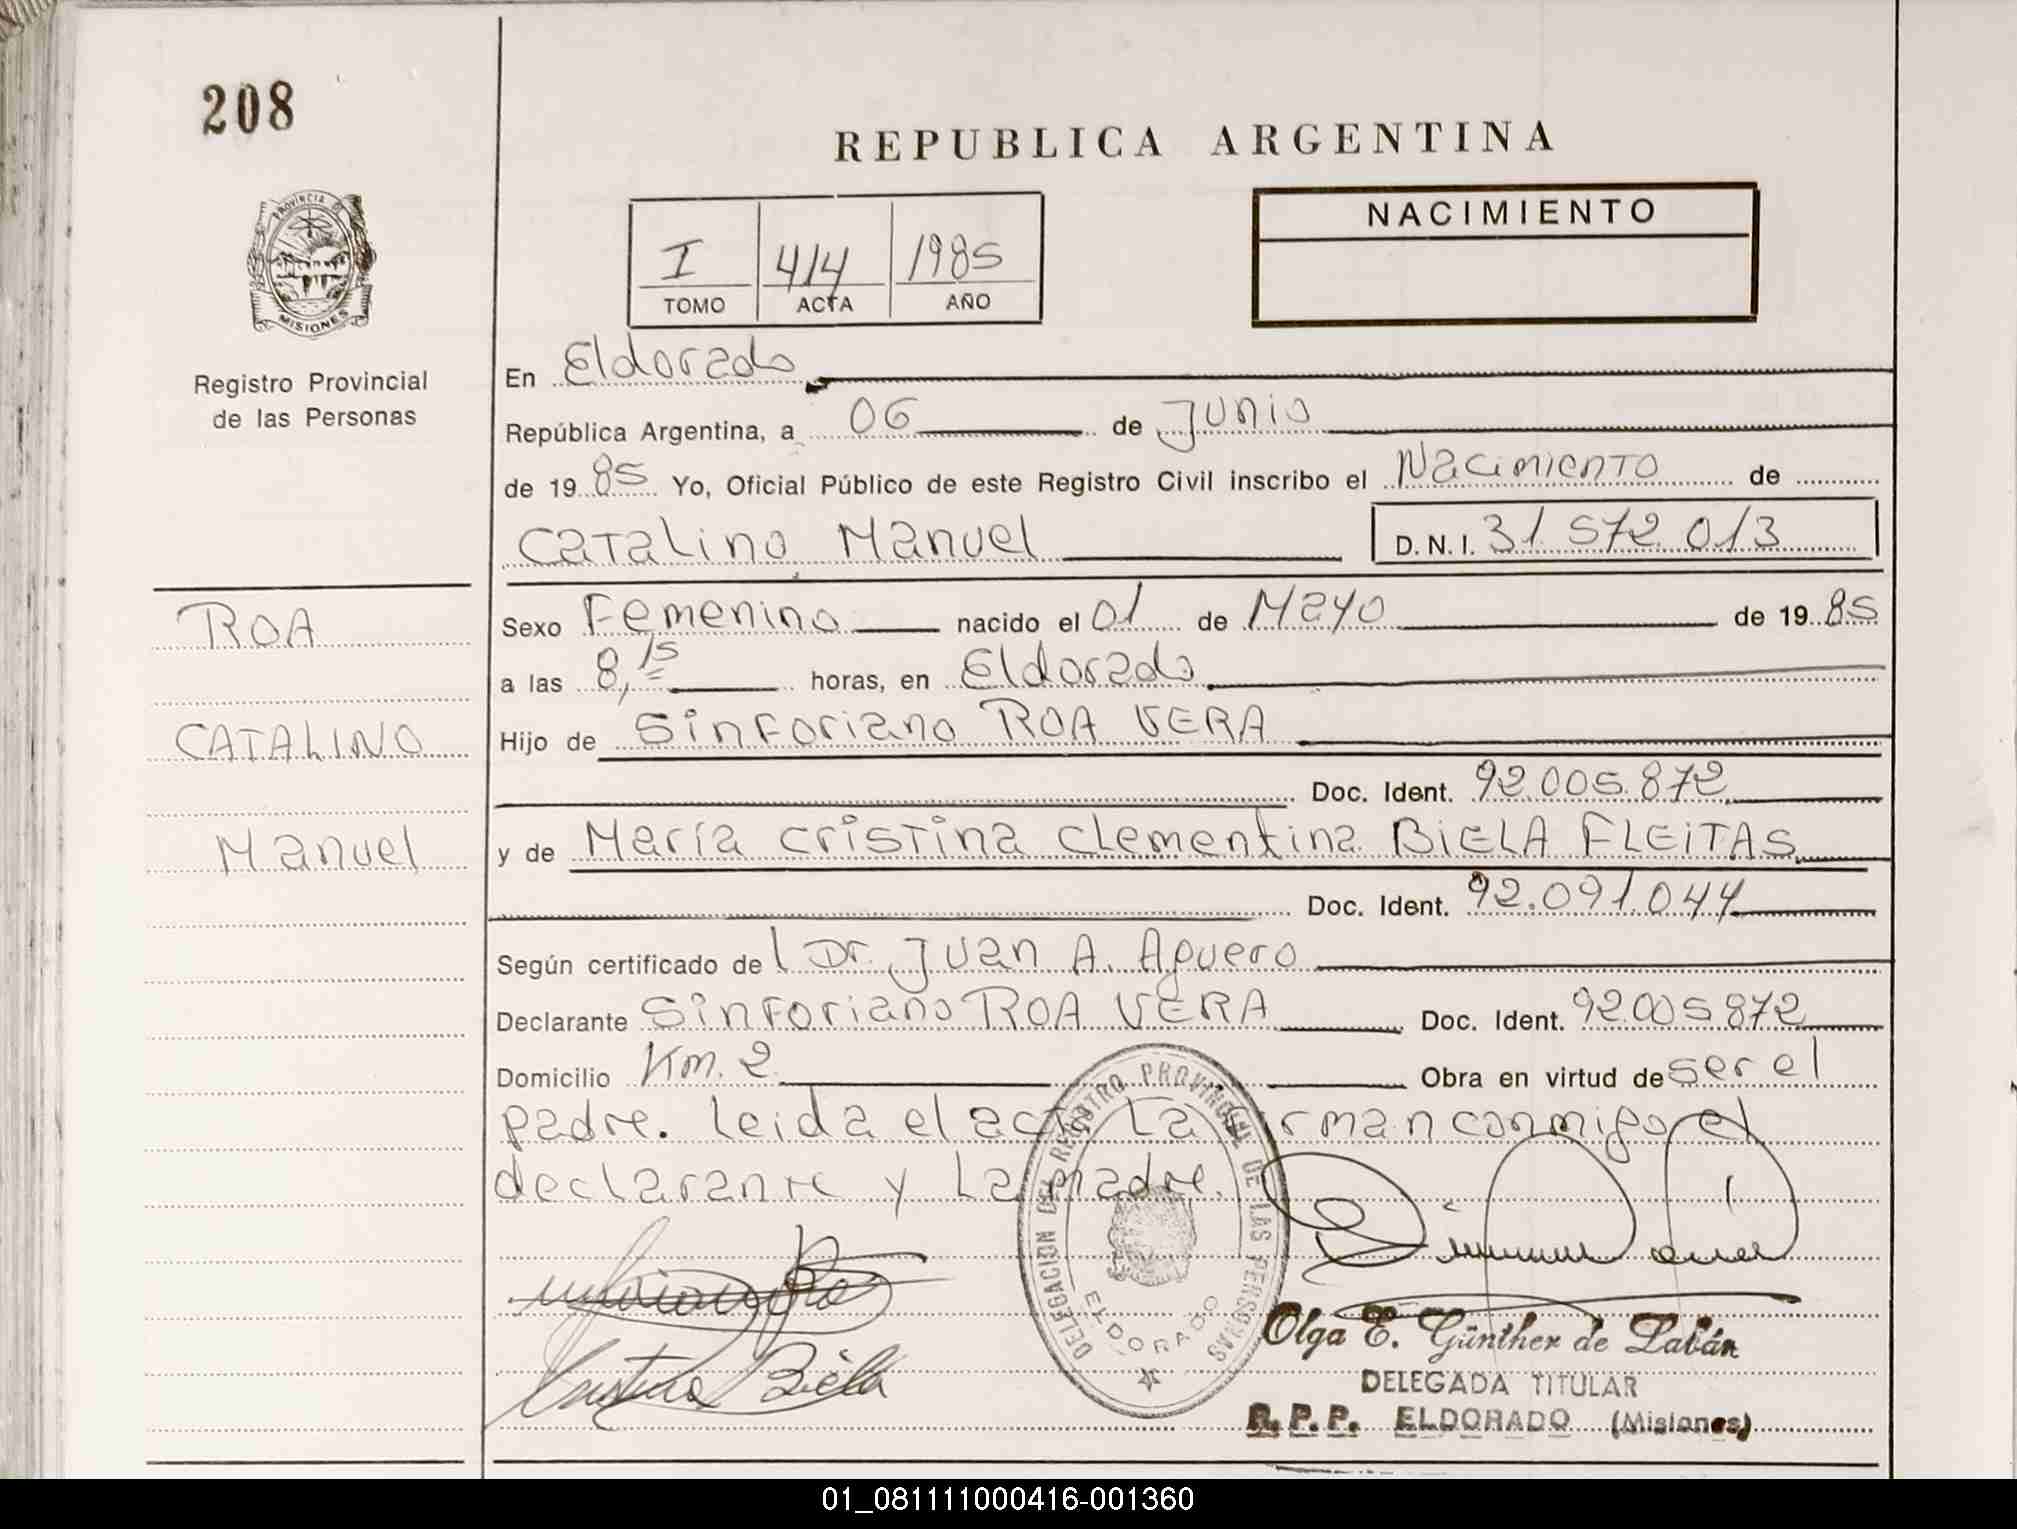 208
REPUBLICA ARGENTINA
PROVINCIA DE
MISIONES
Registro Provincial
de las Personas
I 414 1985
TOMO ACTA AÑO
NACIMIENTO
En Eldorado
República Argentina, a 06 de Junio
de 1985 Yo, Oficial Público de este Registro Civil inscribo el Nacimiento de
Catalino Manuel D.N.I. 31.572.013
ROA
CATALINO
Manuel
Sexo Femenino nacido el 01 de Mayo de 1985
a las 8,15 horas, en Eldorado
Hijo de Sinforiano ROA VERA
Doc. Ident. 92.005.872
y de María Cristina Clementina BIELA FLEITAS
Doc. Ident. 92.091.044
Según certificado de l Dr. Juan A. Aguero
Declarante Sinforiano ROA VERA Doc. Ident. 92.005.872
Domicilio Km. 2 Obra en virtud de ser el
padre. Leida el acta La firman conmigo el
declarante y La madre.
DELEGACION DEL REGISTRO PROVINCIAL DE LAS PERSONAS
ELDORADO
Cristina Biela
Olga E. Günther de Labán
DELEGADA TITULAR
R.P.P. ELDORADO (Misiones)
01_081111000416-001360